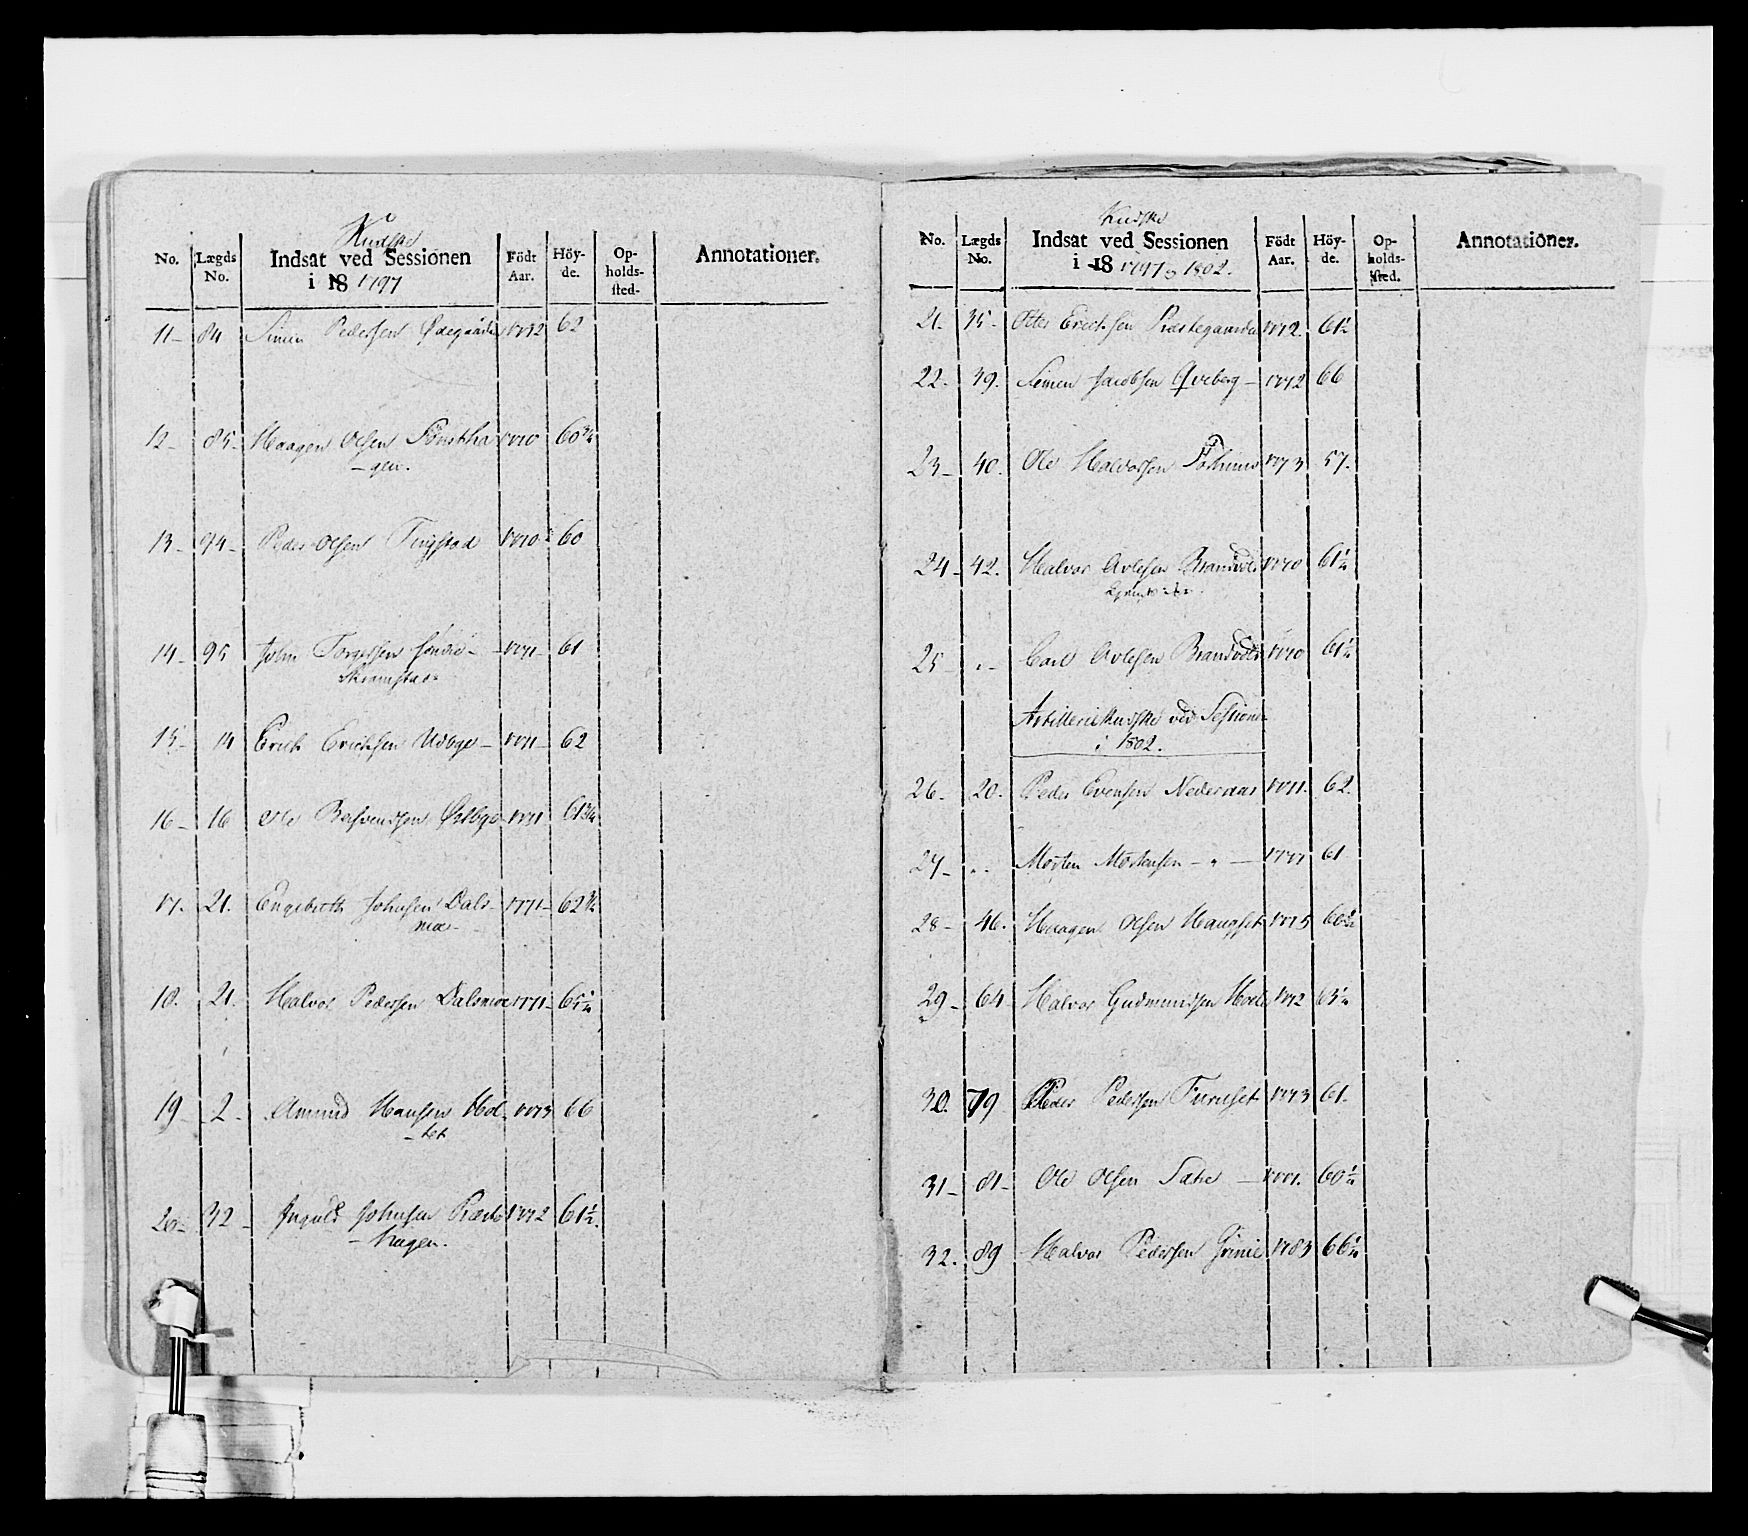 Kudske
No. Lægds No. Indsat ved Sessionen i 18 1797 Födt Aar. Höyde. Opholds-sted. Annotationer.
11 - 84 Simen Pedersen Ødegaarden 1772 62
12 - 85 - Haagen Olsen Sönstha 1770 60 3/4
- gen.
13 - 94 - Peder Olsen Tingstad 1770 60
14 - 95 John Torgersen söndre - 1771 - 61
Skramstad
15 - 14 Erich Erichsen Udbye - 1771 - 62
16 - 16 Ole Bersvendsen Østbye 1771 61 3/4
17. 21. Engebreth Johnsen Dals- 1771 - 62 3/4
moe -
18. 21. Halvor Pedersen Dalsmoe 1771 - 65 1/4
19 - 2 - Amund Hansen Hol 1773 66
- tet
20 - 32 - Ingvald Johnsen Præste 1772 61 1/2.
- hagen.
Kudske
No. Lægds No. Indsat ved Sessionen i 18 1797 og 1802. Födt Aar. Höyde. Opholds-sted. Annotationer.
21. 35 - Otter Erichsen Præstegaarden 1772. 61 1/2
22. 39. Simen Jacobsen Qveberg - 1772 66
23 - 40. Ole Halvorsen 1773 57.
24 - 42. Halvor Avlesen Brandvold 1770 61 1/2
25 - " - Carl Avlesen Brandvold 1770 61 1/2
Artilleriekudske ved Sessionen
i 1802.
26 - 20. Peder Evensen Nederaas 1771. 62.
27 - " - Morten Mortensen - " - 1777 61
28 - 46. Haagen Olsen Haugset 1775 60 3/4
29 - 64 Halvor Gudmundsen 1772 63 1/4
30. 79 Peder Pedersen Furuset 1773 61.
31 - 81 - Ole Olsen Sætre - 1771. 60 1/4
32. 89 Halvor Pedersen Grinie 1783 66 1/2